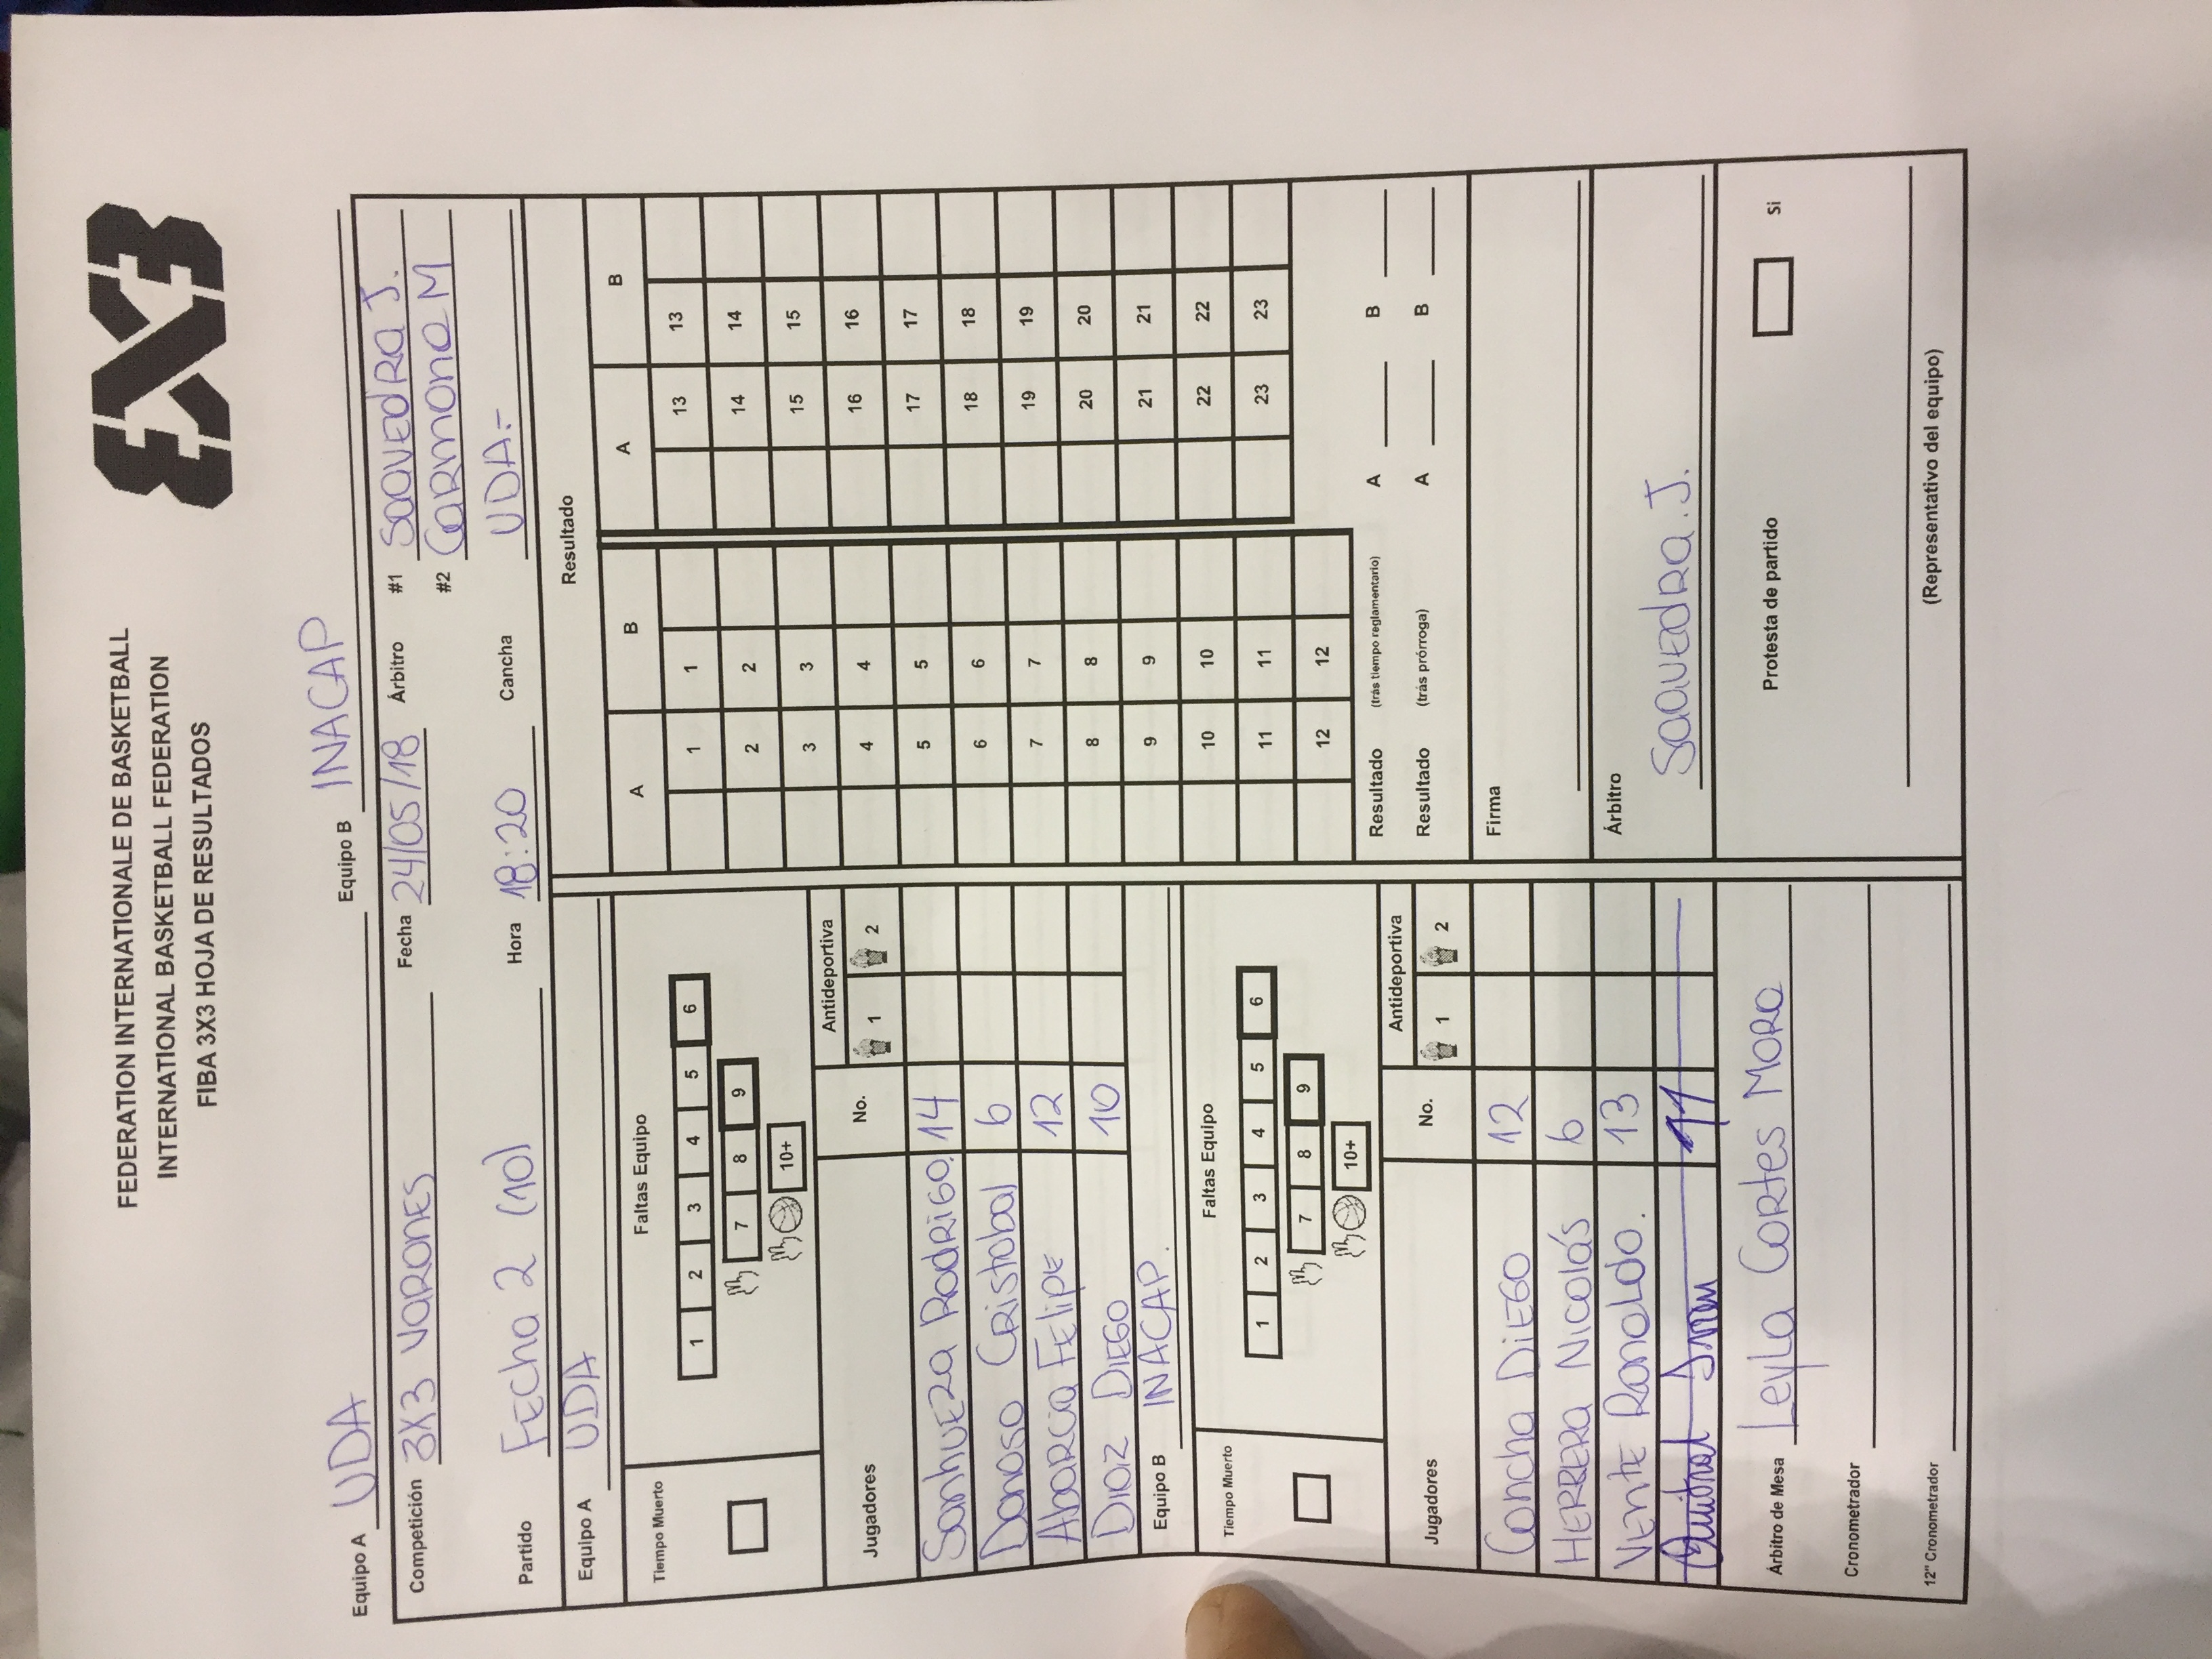 FEDERATION INTERNATIONALE DE BASKETBALL
INTERNATIONAL BASKETBALL FEDERATION
FIBA 3X3 HOJA DE RESULTADOS
3X3
Equipo A UDA Equipo B INACAP
Competición 3X3 VARONES Fecha 24/05/18 Árbitro #1 SAAVEDRA J.
#2 CARMONA M
Partido FECHA 2 (10) Hora 18:20 Cancha UDA.-
Equipo A UDA
Tiempo Muerto
Faltas Equipo
1 2 3 4 5 6
7 8 9
10+
Jugadores No. Antideportiva
1 2
Sanhueza Rodrigo. 14
Donoso Cristobal 6
Abarca Felipe 12
Diaz Diego 10
Equipo B INACAP.
Tiempo Muerto
Faltas Equipo
1 2 3 4 5 6
7 8 9
10+
Jugadores No. Antideportiva
1 2
Concha Diego 12
Herrera Nicolás 6
Vente Ronaldo. 13
11
Árbitro de Mesa Leyla Cortes Mora
Cronometrador
12" Cronometrador
Resultado
A B A B
1 1 13 13
2 2 14 14
3 3 15 15
4 4 16 16
5 5 17 17
6 6 18 18
7 7 19 19
8 8 20 20
9 9 21 21
10 10 22 22
11 11 23 23
12 12
Resultado (trás tiempo reglamentario) A B
Resultado (trás prórroga) A B
Firma
Árbitro
SAAVEDRA. J.
Protesta de partido Si
(Representativo del equipo)